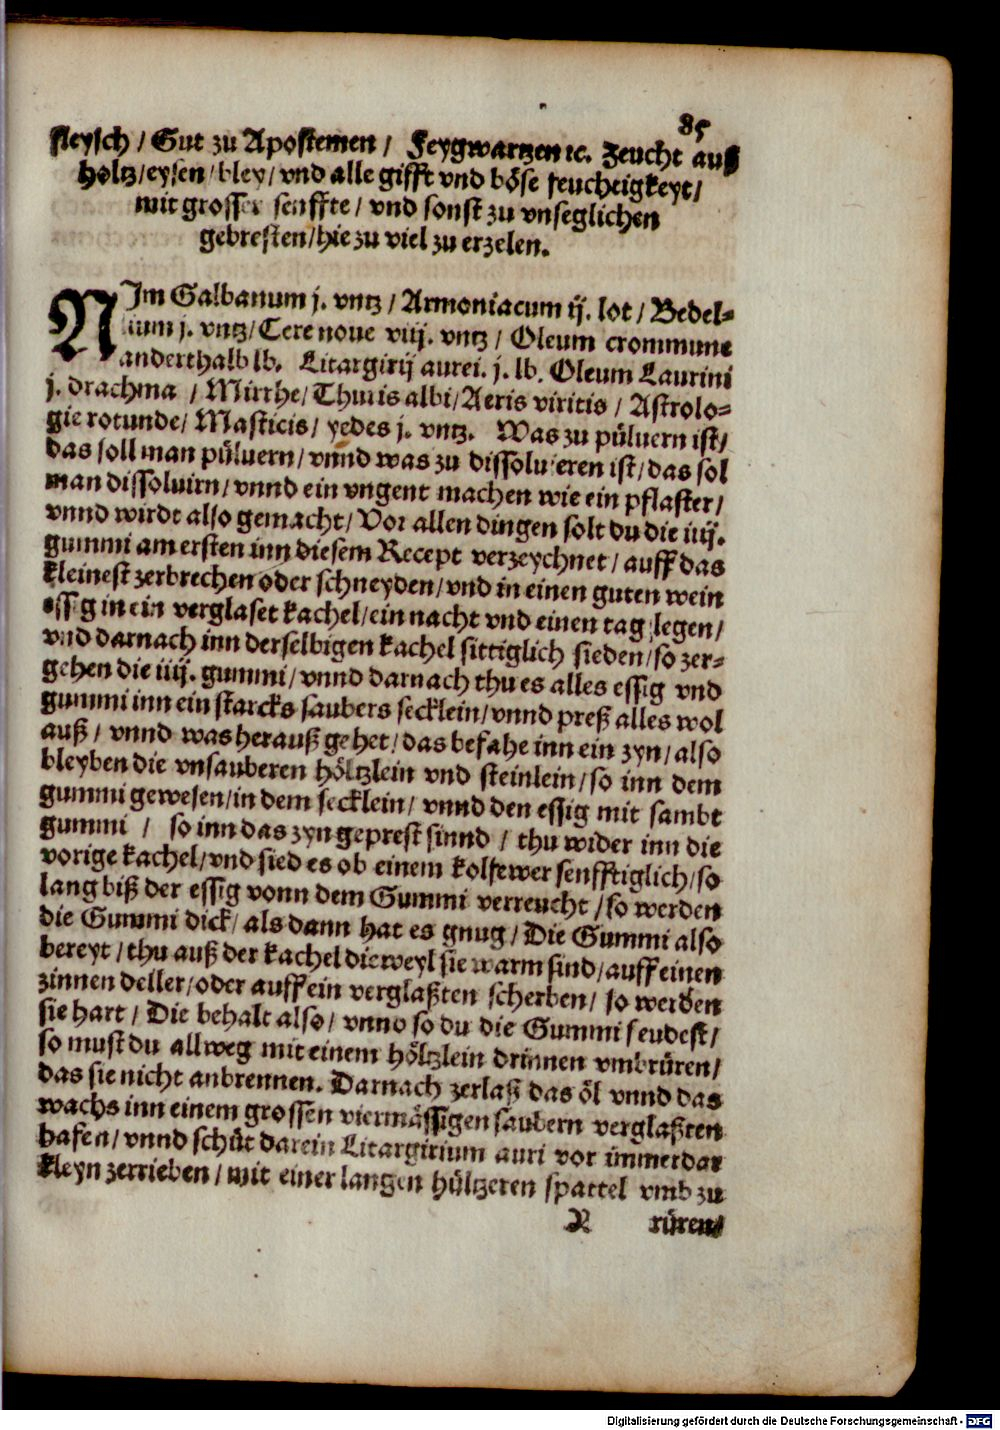 85
fleysch / Gut zu Apostemen / Feygwartzen ꝛc. Zeucht auß
holtz/eysen/bley/vnd alle gifft vnd böse feuchtigkeyt/
mit grosser senffte / vnd sonst zu vnseglichen
gebresten/hie zu viel zu erzelen.
NIm Galbanum j. vntz / Armoniacum ij. lot / Bedel⸗
lium j. vntz/Cere noue viij. vntz / Oleum crommune
anderthalb lb. Litargirij aurei. j. lb. Oleum Laurini
j. drachma / Mirrhe/Thuris albi/Aeris viritis / Astrolo⸗
gie rotunde/ Masticis/ yedes j. vntz. Was zu pülvern ist/
das soll man pülvern/vnnd was zu dissoluieren ist/das sol
man dissoluirn/vnnd ein vngent machen wie ein pflaster/
vnnd wirdt also gemacht/Vor allen dingen solt du die iiij.
gummi am ersten inn diesem Recept verzeychnet/auff das
kleinest zerbrechen oder schneyden/vnd in einen guten wein
essig in ein verglaset kachel/ein nacht vnd einen tag legen/
vnd darnach inn derselbigen kachel sittiglich sieden/so zer⸗
gehen die iiij. gummi/vnnd darnach thu es alles essig vnd
gummi inn ein starcks saubers secklein/vnnd preß alles wol
auß / vnnd was herauß gehet/das befahe inn ein zyn/also
bleyben die vnsauberen höltzlein vnd steinlein/so inn dem
gummi gewesen/in dem secklein/ vnnd den essig mit sambt
gummi / so inn das zyn geprest sinnd / thu wider inn die
vorige kachel/vnd sied es ob einem kolfewer senfftiglich/so
lang biß der essig vonn dem Gummi verreucht/so werden
die Gummi dick/als dann hat es gnug/Die Gummi also
bereyt/thu auß der kachel dieweyl sie warm sind/auff einen
zinnen deller/oder auff ein verglaßten scherben/ so werden
sie hart/ Die behalt also/ vnno so du die Gummi seudest/
so must du allweg mit einem höltzlein drinnen vmbrüren/
das sie nicht anbrennen. Darnach zerlaß das öl vnnd das
wachs inn einem grossen viermässigen saubern verglaßten
hafen/vnnd schüt darein Litargirium auri vor immerdar
kleyn zerrieben/mit einer langen hültzeren spattel vmb zu
rüren/
Digitalisierung gefördert durch die Deutsche Forschungsgemeinschaft - DFG